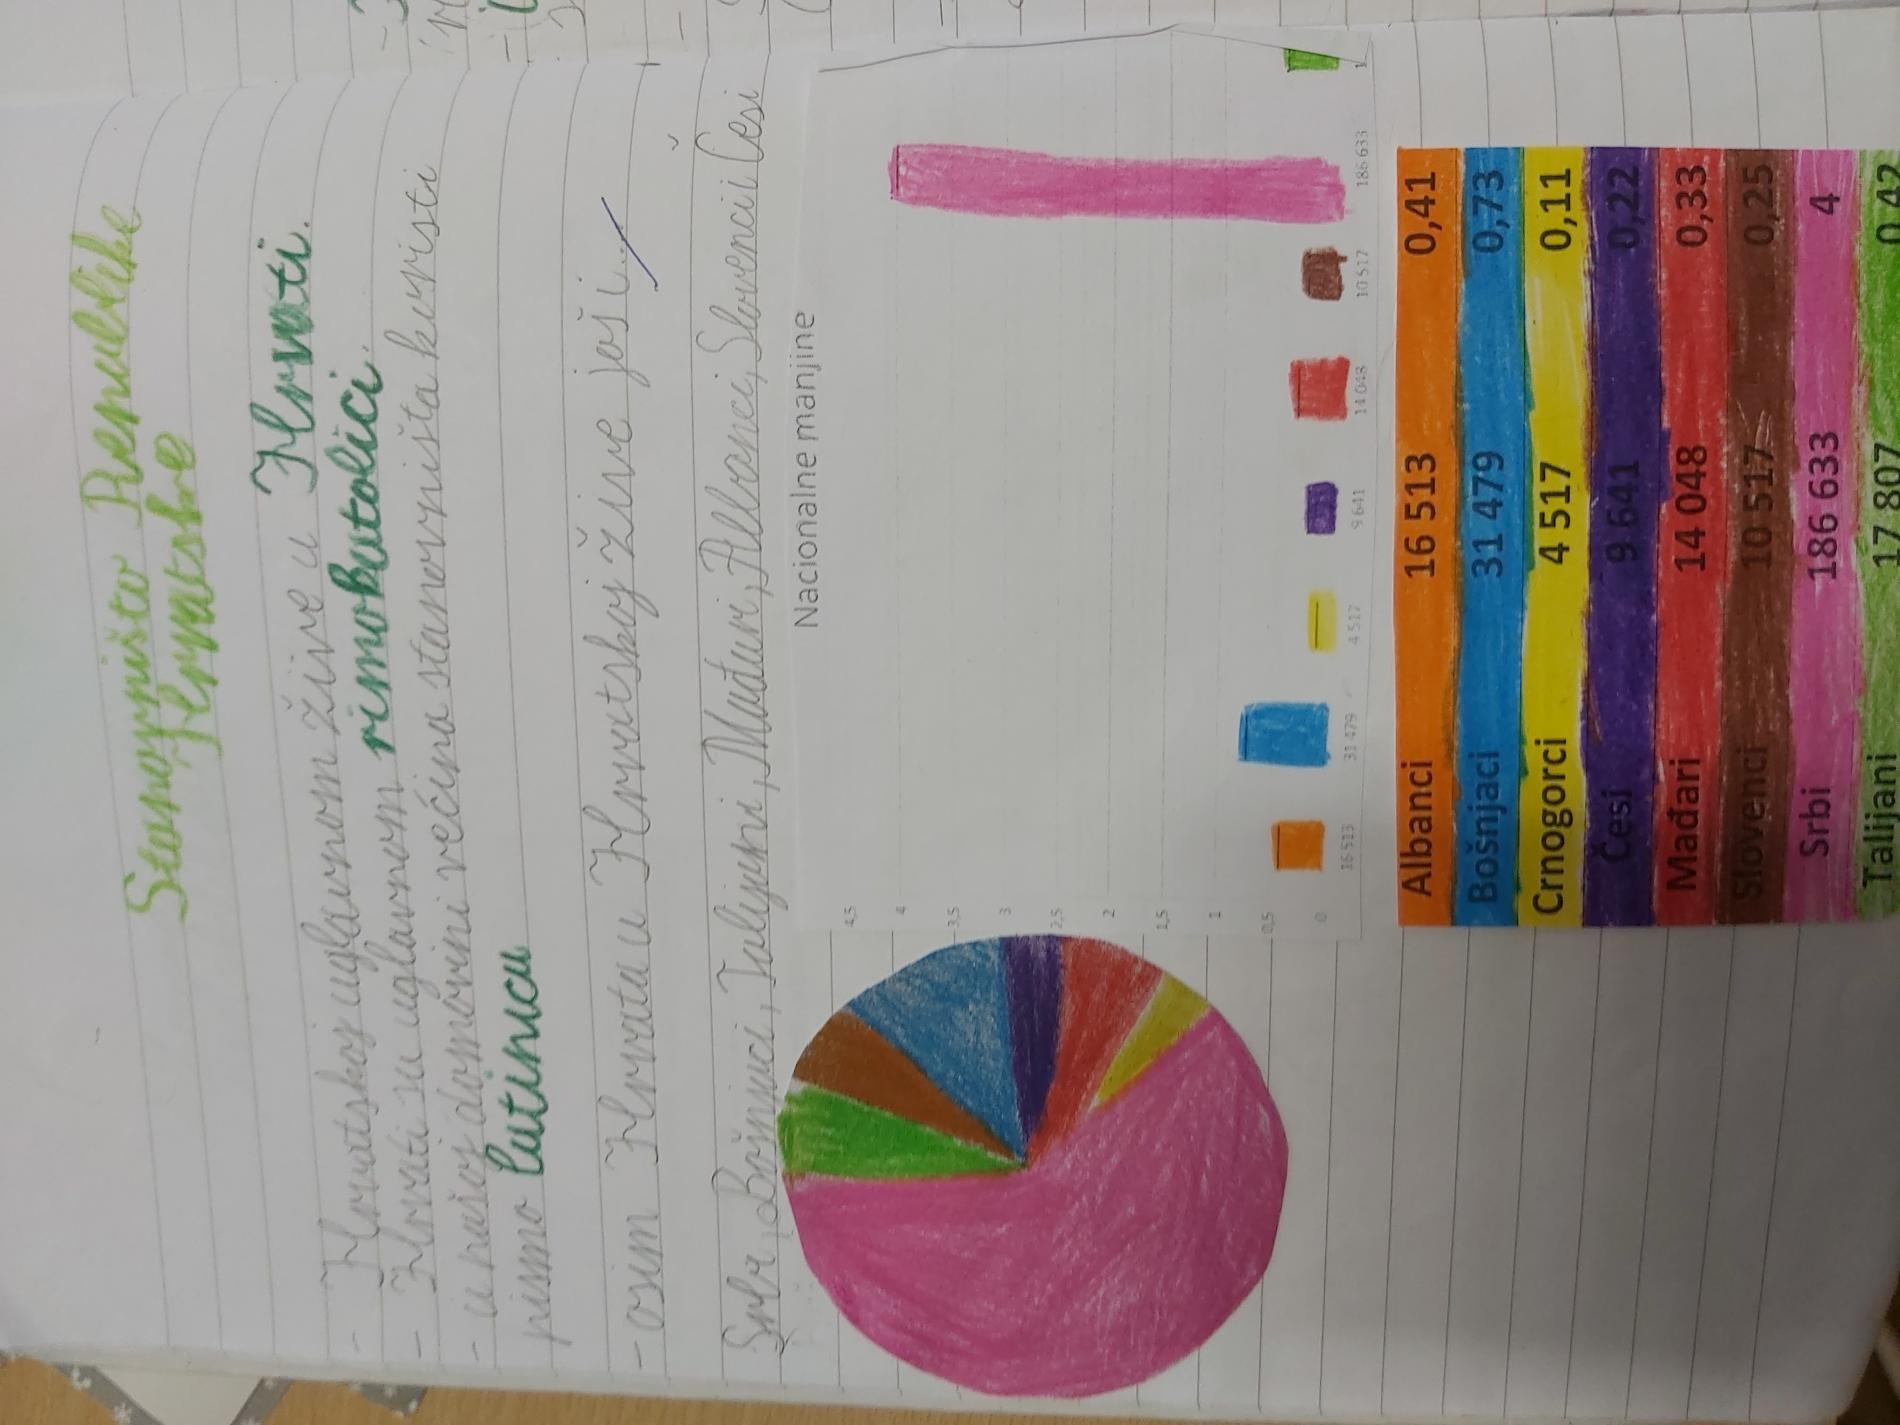 Stanovništo Republike
Hrvatske
- Hrvatskoj uglavnom žive u Hrvati.
- Hrvati su uglavnom rimokatolici.
- u našoj domovini većina stanovništa koristi
pismo latinicu
- osim Hrvata u Hrvatskoj žive još i...
Srbi, Bošnjaci, Talijani, Mađari, Albanci, Slovenci i Česi
Nacionalne manjine
4,5
4
3,5
3
2,5
2
1,5
1
0,5
0
16 513 31 479 4 517 9 641 14 048 10 517 186 633 1
Albanci 16 513 0,41
Bošnjaci 31 479 0,73
Crnogorci 4 517 0,11
Česi 9 641 0,22
Mađari 14 048 0,33
Slovenci 10 517 0,25
Srbi 186 633 4
Talijani 17 807 0,42